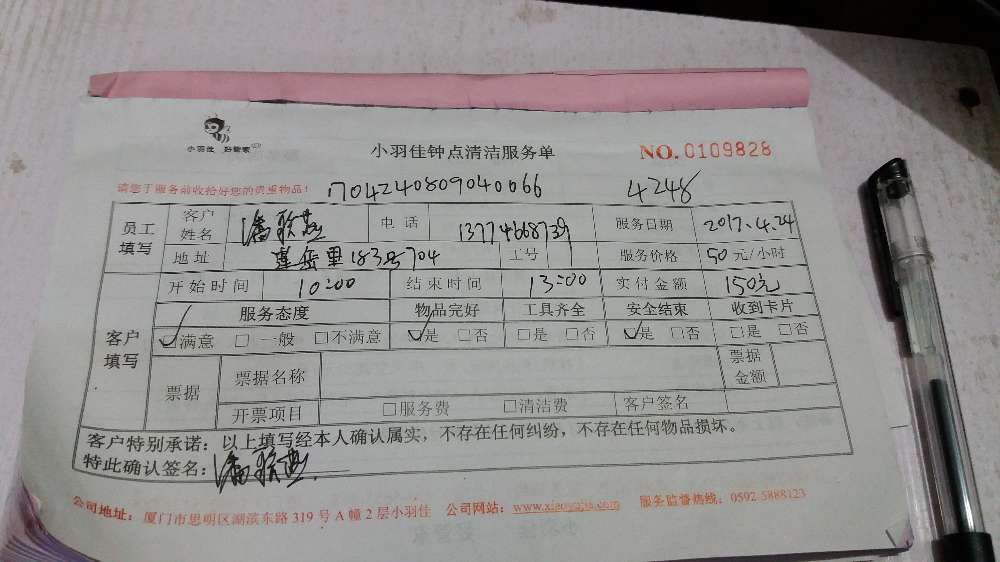 小羽佳 好管家
小羽佳钟点清洁服务单
NO. 0109828
请您于服务前收拾好您的贵重物品！ 1704240809040066 4248
员工填写 客户姓名 潘 电话 13774668739 服务日期 2017.4.24
地址 莲岳里183号704 工号 服务价格 50元/小时
客户填写 开始时间 10:00 结束时间 13:00 实付金额 150元
服务态度 物品完好 工具齐全 安全结束 收到卡片
☑满意 □一般 □不满意 ☑是 □否 □是 □否 ☑是 □否 □是 □否
票据 票据名称 票据金额
开票项目 □服务费 □清洁费 客户签名
客户特别承诺：以上填写经本人确认属实，不存在任何纠纷，不存在任何物品损坏。
特此确认签名：潘
公司地址：厦门市思明区湖滨东路319号A幢2层小羽佳 公司网站：www.xiaoyujia.com 服务监督热线：0592-5888123